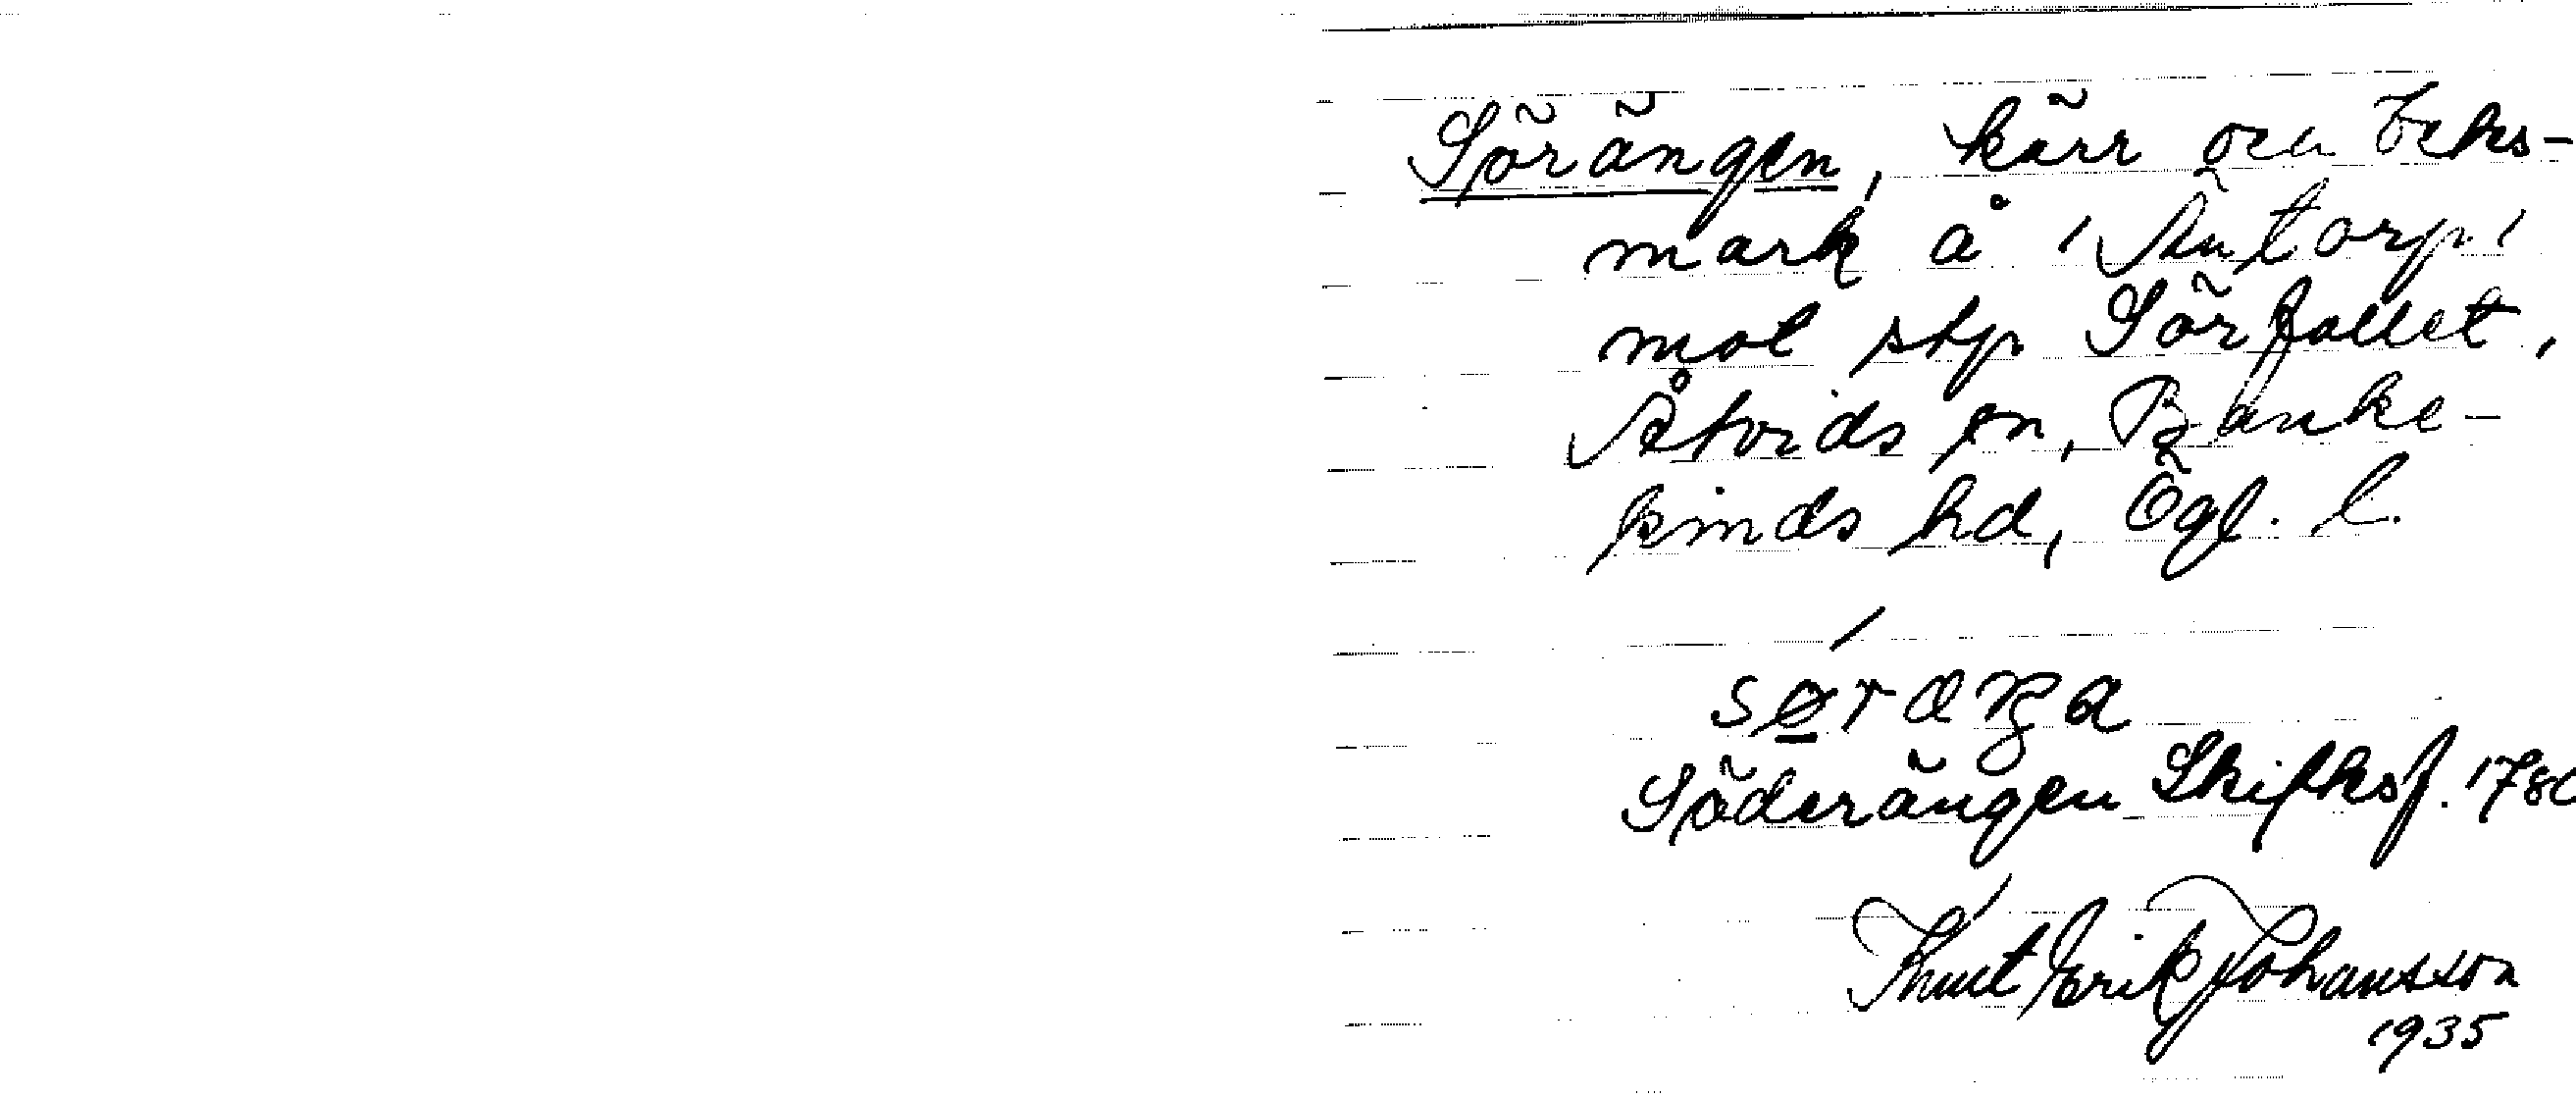 Sörängen, kärr och beks-
mark å
mot stp Sörfallet,
Åtvids sn, Banke-
kinds hd, Ögl. l.
Söderängen Skifksf. 178
Knut Erik Johansson
1935